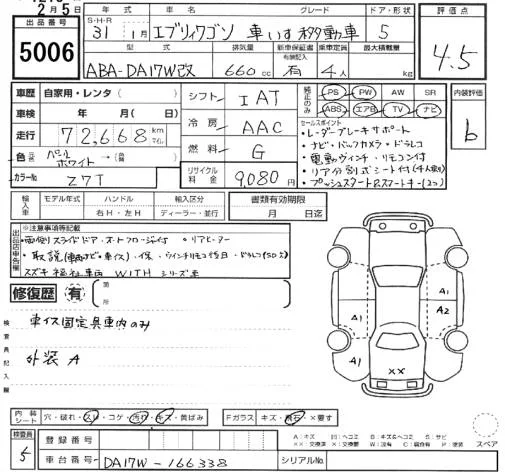 2月5日
出品番号
5006
年式 車名 グレード ドア・形状
S・H・R 31年 1月 エブリィワゴン 車いす移動車 5
型式 排気量 新車保証書 有無記入 乗車定員 最大積載量
ABA-DA17W改 660cc 有 4人 kg
評価点
4.5
車歴 自家用・レンタ・( )
車検 年 月( 日)
走行 72,668 km
色 元色 パールホワイト →(替 )
カラーNo. Z7T
シフト IAT
冷房 AAC
燃料 G
リサイクル料金 9,080円
純正のみ PS PW AW SR
ABS エアB TV ナビ
セールスポイント
・レーダーブレーキサポート
・ナビ・バックカメラ・ドラレコ
・電動ウィンチ・リモコン付
・リア分割式シート付(4人乗り)
・プッシュスタートスマートキー(2コ)
内装評価
b
輸入車 モデル年式 ハンドル 輸入区分 書類有効期限
年 右H・左H ディーラー・並行 月 日迄
出品店申告欄
※注意事項等記載
・両側スライドドア・オートクロージャ付 ・リアヒーター
・取説(車両ナビ・車イス)・保・ウインチリモコン後日・ドラレコ(SD欠)
スズキ福祉車両 WITHシリーズ車
修復歴 有 箇所
検査員記入欄
車イス固定具車内のみ
外装 A
A1
A1
A1
A2
××
内装シート 穴・破れ・スレ・コゲ・汚れ・キズ・黄ばみ Fガラス キズ・飛石・×要す
スペア
検査員
5
登録番号
車台番号 DA17W-166338 シリアルNo.
A:キズ U:ヘコミ B:キズ&ヘコミ S:サビ
XX:交換済 X:交換要 W:波有 C:腐食有 P:塗装